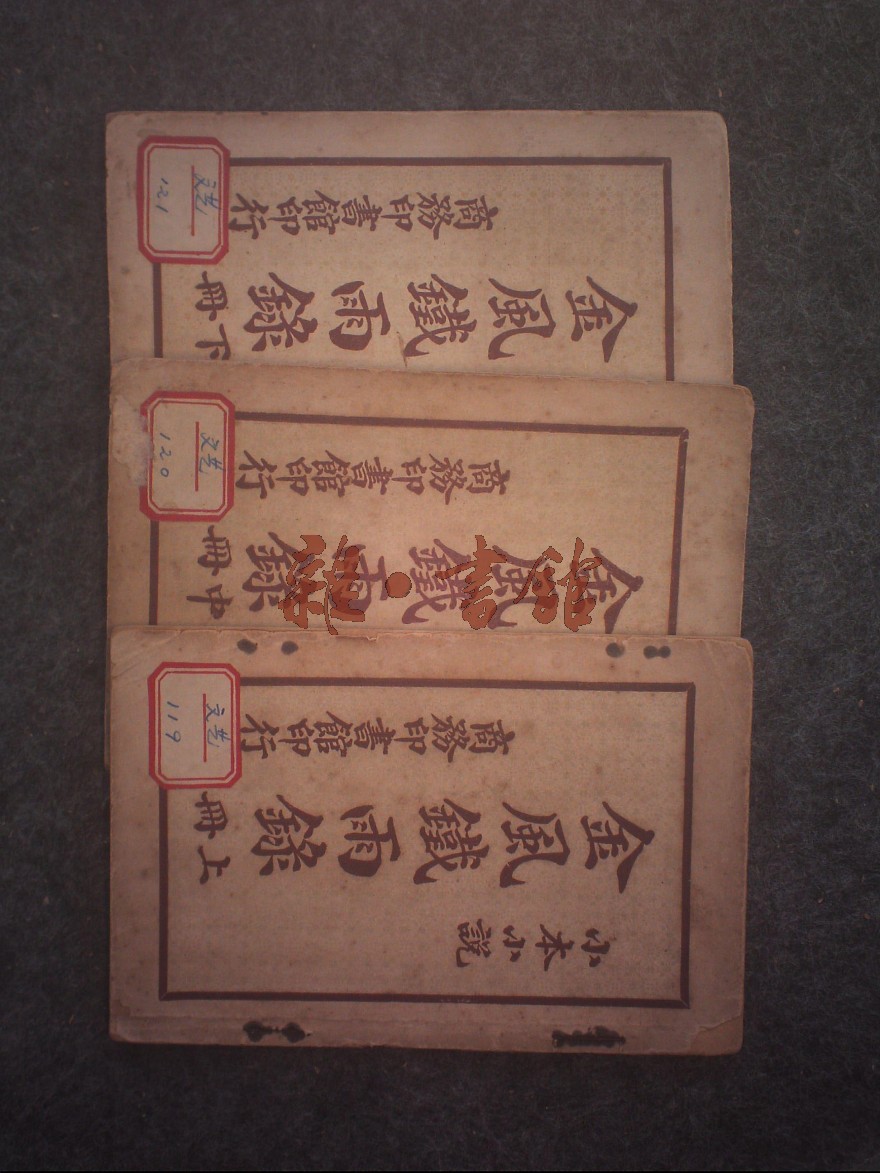 商務印書館印行
金風鐵雨錄
冊下
文艺
121
商務印書館印行
金風鐵雨錄
冊中
文艺
120
小本小說
金風鐵雨錄
冊上
商務印書館印行
文艺
119